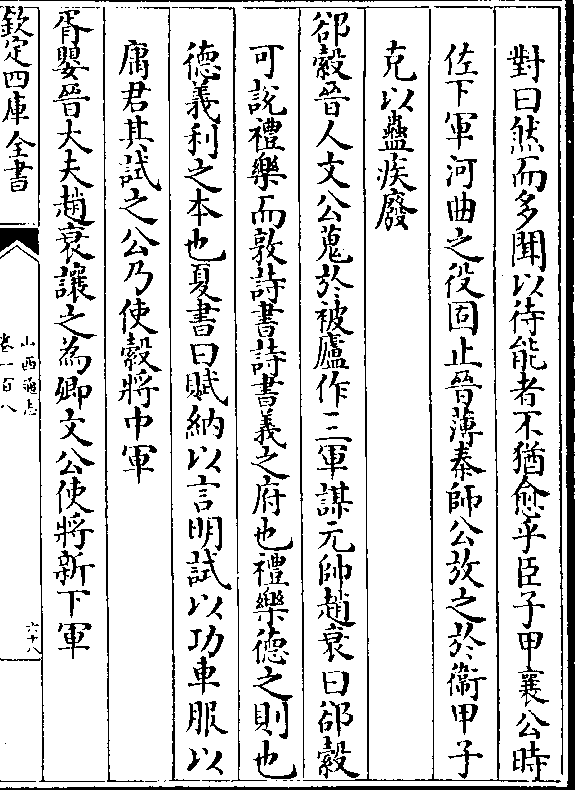 對曰然而多聞以待能者不猶愈乎臣子甲襄公時
佐下軍河曲之役固止晉薄秦師公放之於衛甲子
克以蠱疾廢
郤縠晉人文公蒐於被廬作三軍謀元帥趙衰曰郤縠
可說禮樂而敦詩書詩書義之府也禮樂德之則也
德義利之本也夏書曰賦納以言明試以功車服以
庸君其試之公乃使縠將中軍
胥嬰晉大夫趙衰讓之為卿文公使將新下軍
欽定四庫全書
山西通志
卷一百八
六十八